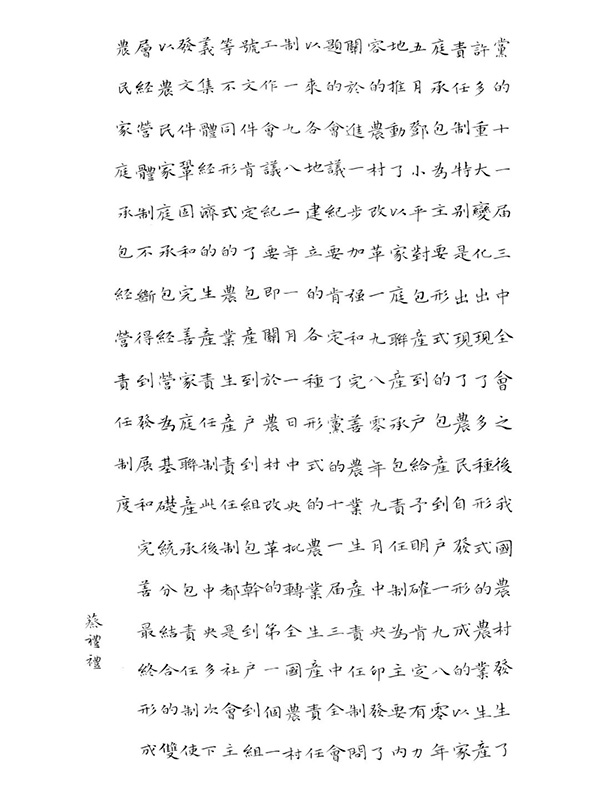 黨的十一屆三中全會之後我國農村發生了
許多重大變化出現了多種形式的農業生產
責任制特別是出現了農民自發形成的以家
庭承包為主要形式的包產到戶一九八零年
五月鄧小平對包產到戶給予明確肯定有力
地推動了以家庭聯產承包責任制為主要內
容的農村改革一九八零年九月中央印發了
關於進一步加强和完善農業生產責任制問
題的會議紀要肯定了黨的十一屆三中全會
以來各地建立的各種形式的農業生產責任
制一九八二年一月一日中央批轉全國農村
工作會議紀要即關於農村改革的第一個一
號文件肯定了包產到戶到組包幹到戶到組
等不同形式的農業生產責任制都是社會主
義集體經濟的生產責任制此後中央多次下
發文件鞏固和完善家庭聯產承包責任制使
以農民家庭承包經營為基礎統分結合的雙
層經營體制不斷得到發展和完善最終形成
農民家庭承包經營責任制度
蔡禮禮